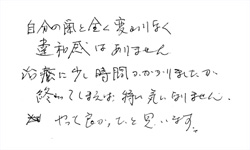 自分の歯と全く変わりなく
違和感はありません
治療に少し時間がかかりましたが
終わってしまえば特に気になりません。
やって良かったと思います。